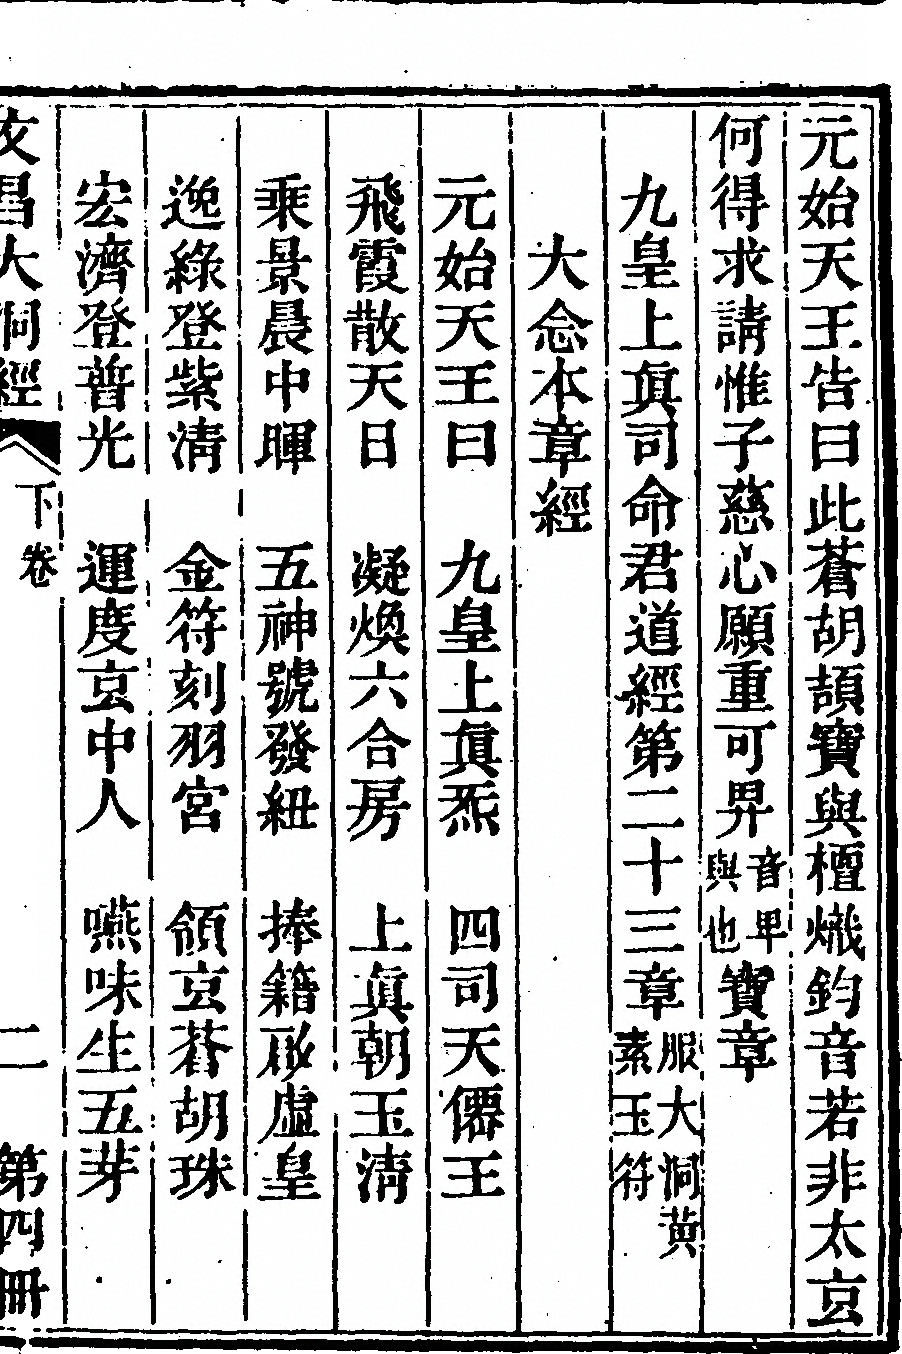 元始天王告曰此蒼胡頡寶與檀熾鈞音若非太𤣥
何得求請惟子慈心願重可畀音畀與也寶章
九皇上眞司命君道經第二十三章服大洞黄素玉符
大念本章經
元始天王曰　九皇上眞炁　四司天僊王
飛霞散天日　凝煥六合房　上眞朝玉清
乘景晨中暉　五神號發紐　捧籍啟虛皇
逸綠登紫清　金符刻羽宮　領𤣥蒼胡珠
宏濟登普光　運度𤣥中人　嚥味生五芽
文昌大洞經　下卷　二　第四冊